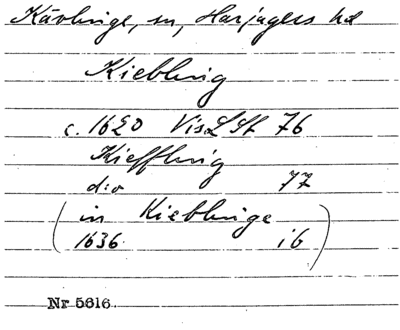 Kävlinge, sn, Harjagers hd
Kiebling
c. 1620 VisLSt 76
Kieffling
d:o 77
(in Kieblinge
1636 ib)
Nr 5616.